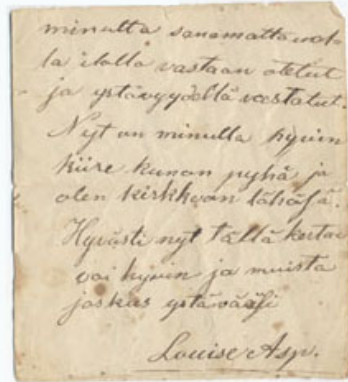 minulta sanomattomal-
la ilolla vastaan otetut
ja ystävyydellä vastatut.
Nyt on minulla hyvin
kiire kunon pyhä ja
olen kirkkoon lähösä.
Hyvästi nyt tällä kertaa
voi hyvin ja muista
joskus ystävääsi
Louise Asp.